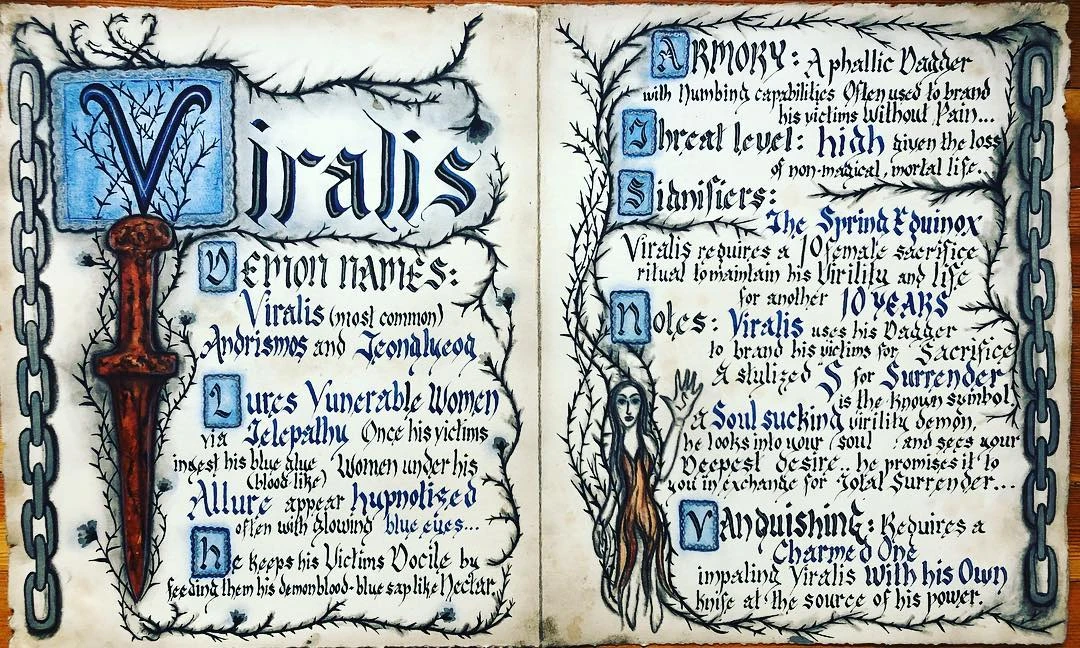 Viralis
DEMON NAMES:
Viralis (most common)
Andrismos and Jeonglyeog
Lures Vunerable Women
via Telepathy Once his victims
ingest his blue glue Women under his
(blood-like)
Allure appear hypnotised
often with glowing blue eyes...
he keeps his Victims Docile by
feeding them his demonblood-blue sap like Nectar.
ARMORY: A phallic Dagger
with Numbing capabilities Often used to brand
his victims Without Pain...
Threat level: high given the loss
of non-magical, mortal life.
Signifiers:
The Spring Equinox
Viralis requires a 10 female sacrifice
ritual to maintain his Virility and life
for another 10 YEARS
Notes: Viralis uses his Dagger
to brand his victims for Sacrifice
A stylized "S" for Surrender
is the known symbol
a Soul sucking virility demon,
he looks into your soul and sees your
Deepest desire.. he promises it to
you in exchange for Total Surrender...
Vanquishing: Requires a
Charmed One
impaling Viralis With his Own
knife at the source of his power.